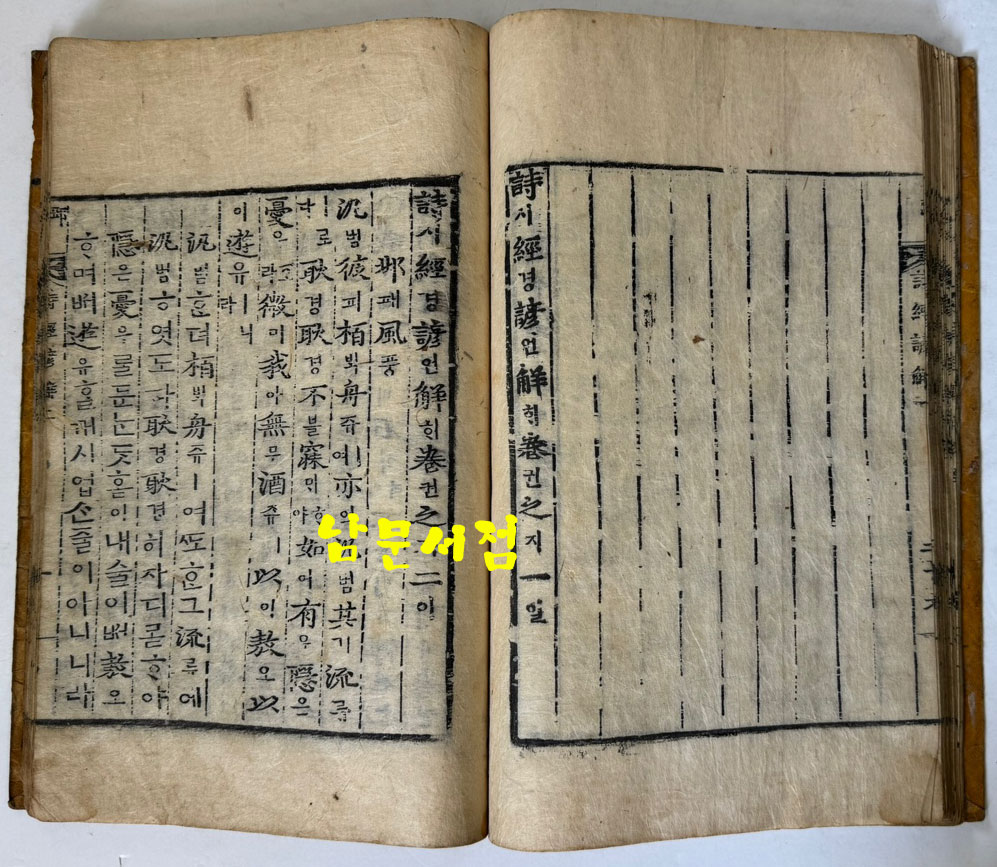 詩經諺解
詩시經경諺언解ᄒᆡ卷권之지一일
詩시經경諺언解ᄒᆡ卷권之지二이
邶패風풍
汎범彼피栢ᄇᆡᆨ舟쥬여亦역汎범其기流류
다로耿경耿경不블寐ᄆᆡᄒᆞ야如여有유隱은
憂우호라微미我아無무酒쥬ㅣ以이敖오以
이遊유ㅣ니라
汎범ᄒᆞᆫ뎌栢ᄇᆡᆨ舟쥬ㅣ여ᄯᅩᄒᆞᆫ그流류에
汎범ᄒᆞ엿도다耿경耿경히자디몯ᄒᆞ야
隱은憂우를둔ᄂᆞᆫᄃᆞᆺ호이내술이ᄡᅥ敖오
ᄒᆞ며ᄡᅥ遊유ᄒᆞᆯ개시업슨줄이아니니라
詩經諺解
남문서점